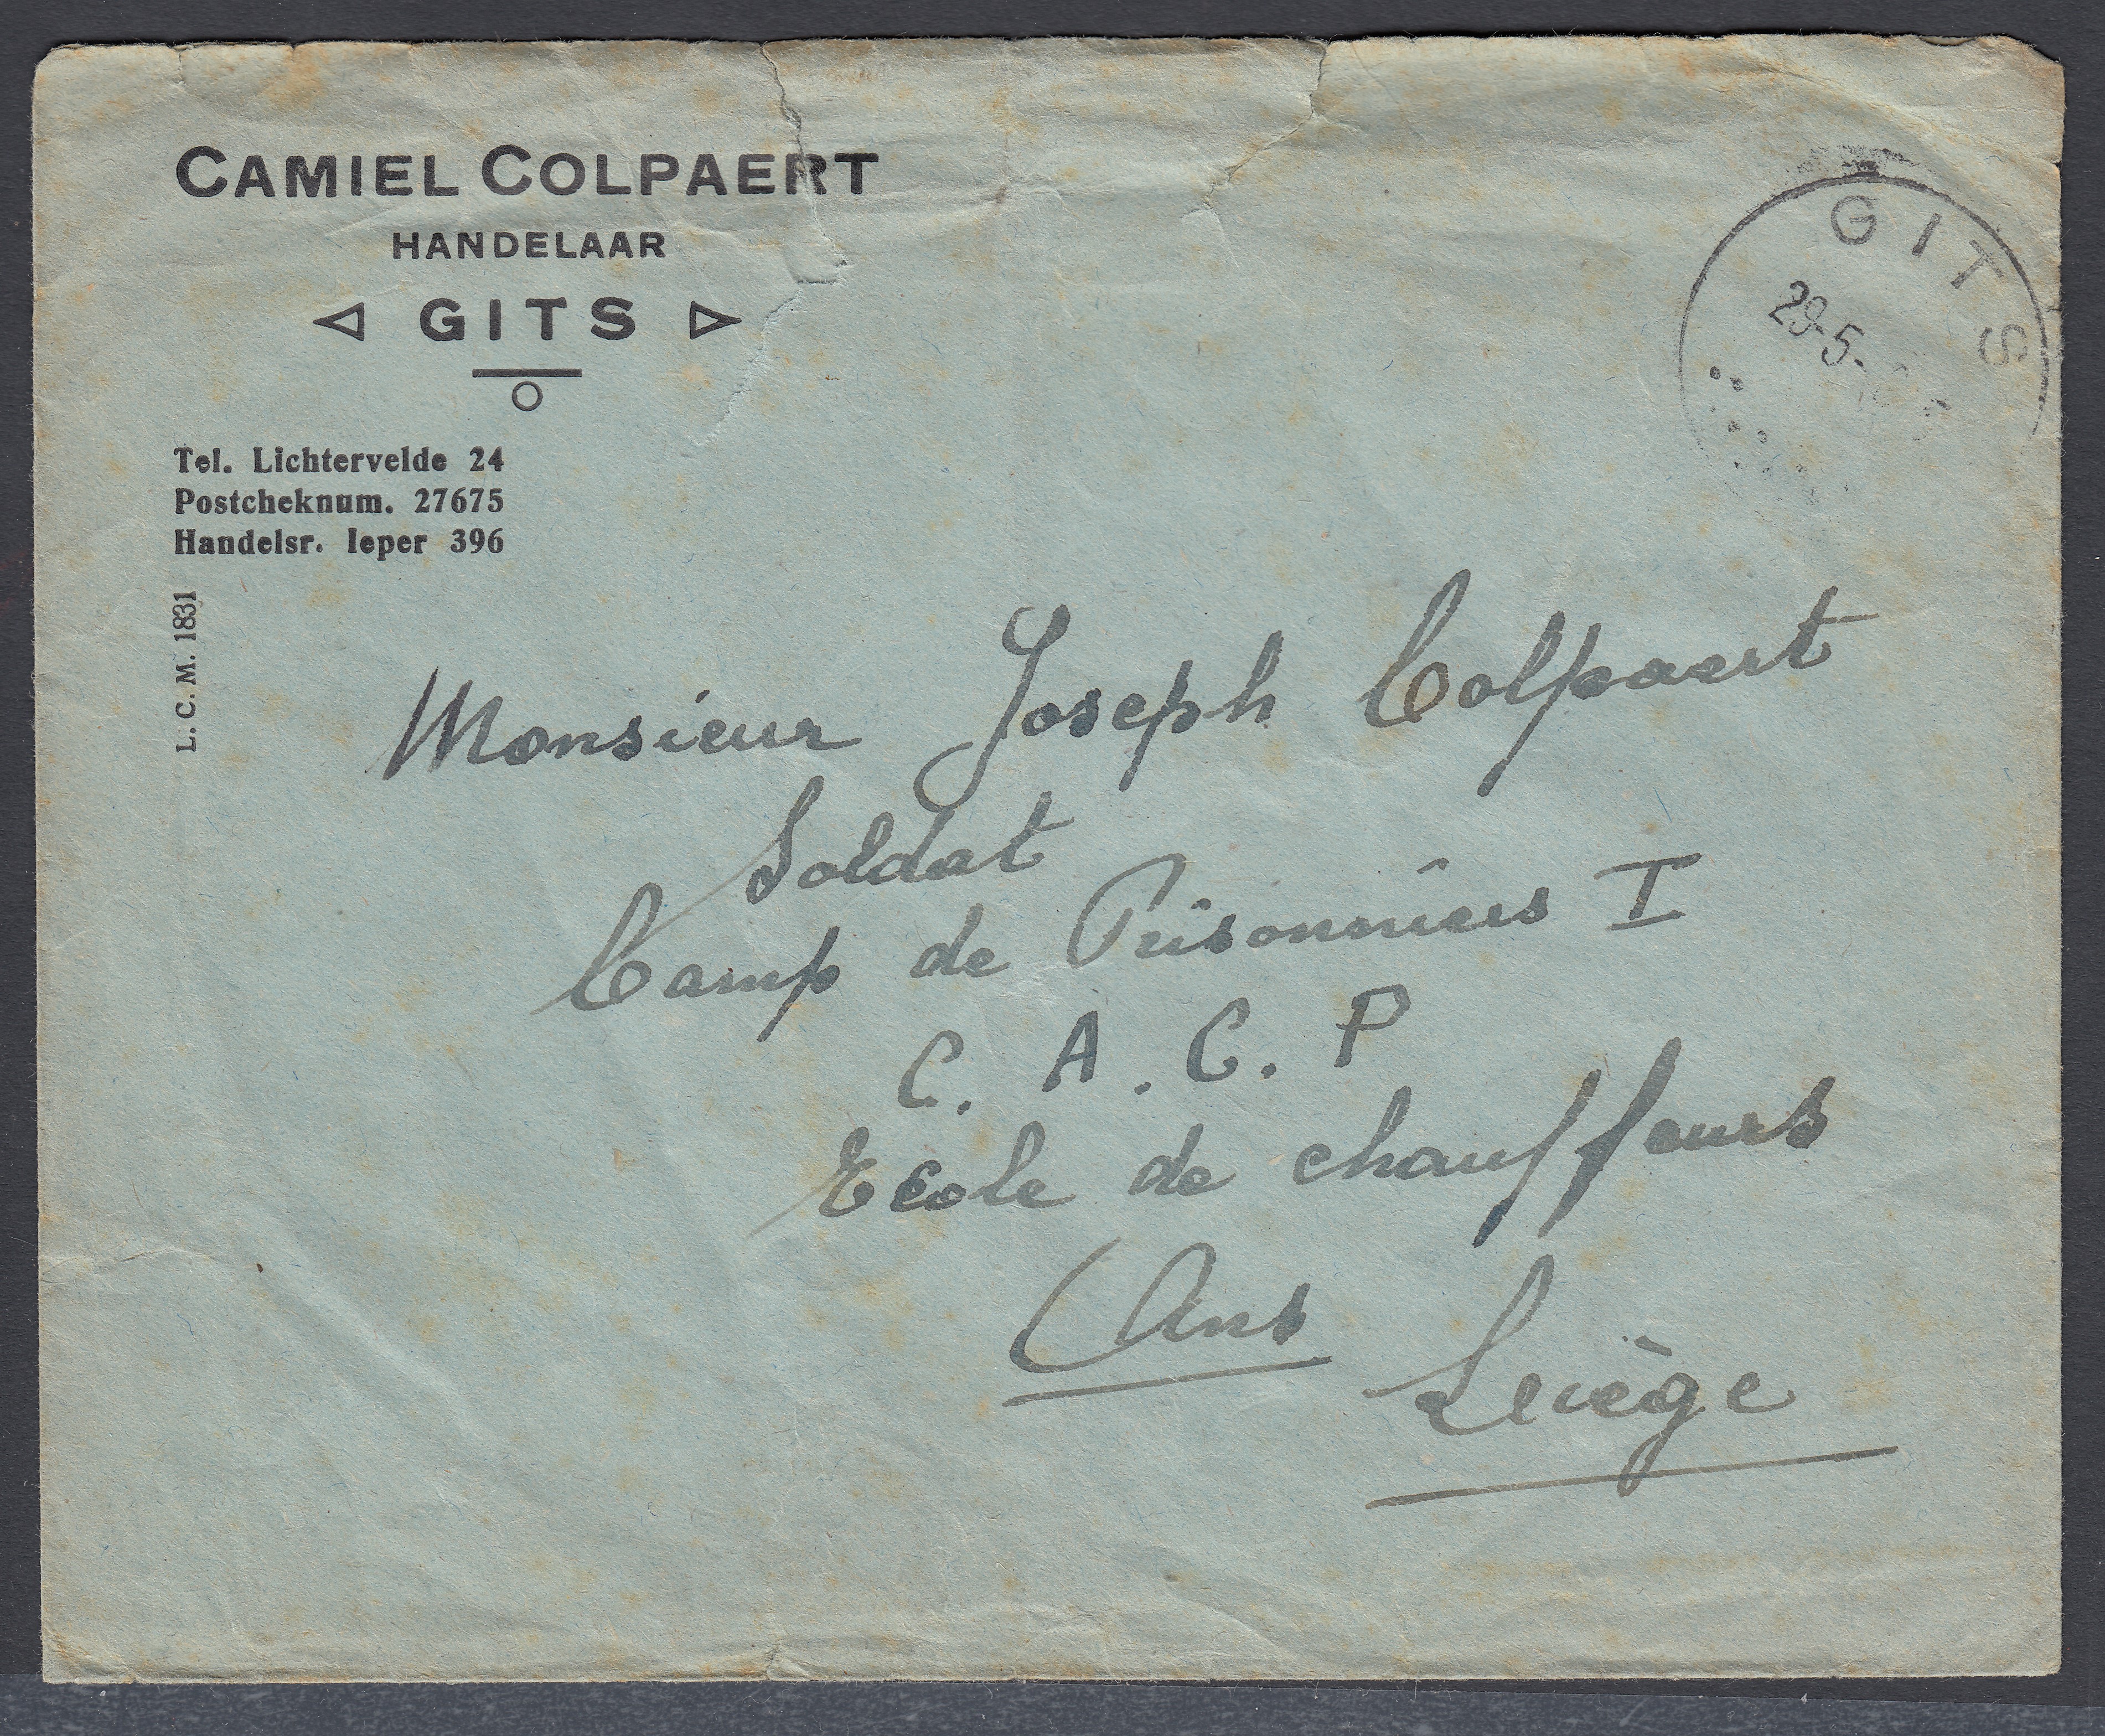 CAMIEL COLPAERT
HANDELAAR
GITS
Tel. Lichtervelde 24
Postcheknum. 27675
Handelsr. Ieper 396
L. C. M. 1831
GITS
29-5-
Monsieur Joseph Colpaert
Soldat
Camp de Prisonniers I
C. A. C. P
Ecole de chauffeurs
Ans
Liège